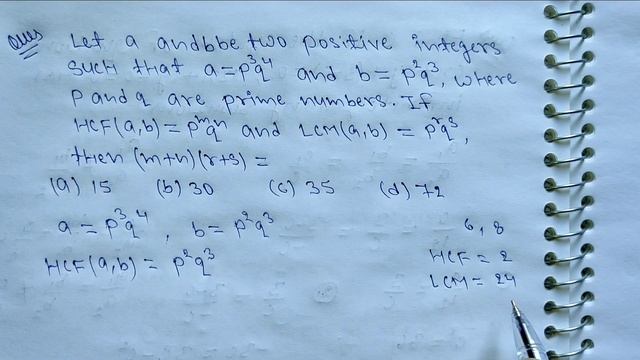 Ques Let a and b be two positive integers
such that a = p³q⁴ and b = p²q³, where
p and q are prime numbers. If
HCF(a,b) = pᵐqⁿ and LCM(a,b) = pʳqˢ,
then (m+n)(r+s) =
(a) 15 (b) 30 (c) 35 (d) 72
a = p³q⁴, b = p²q³
HCF(a,b) = p²q³
6, 8
HCF = 2
LCM = 24